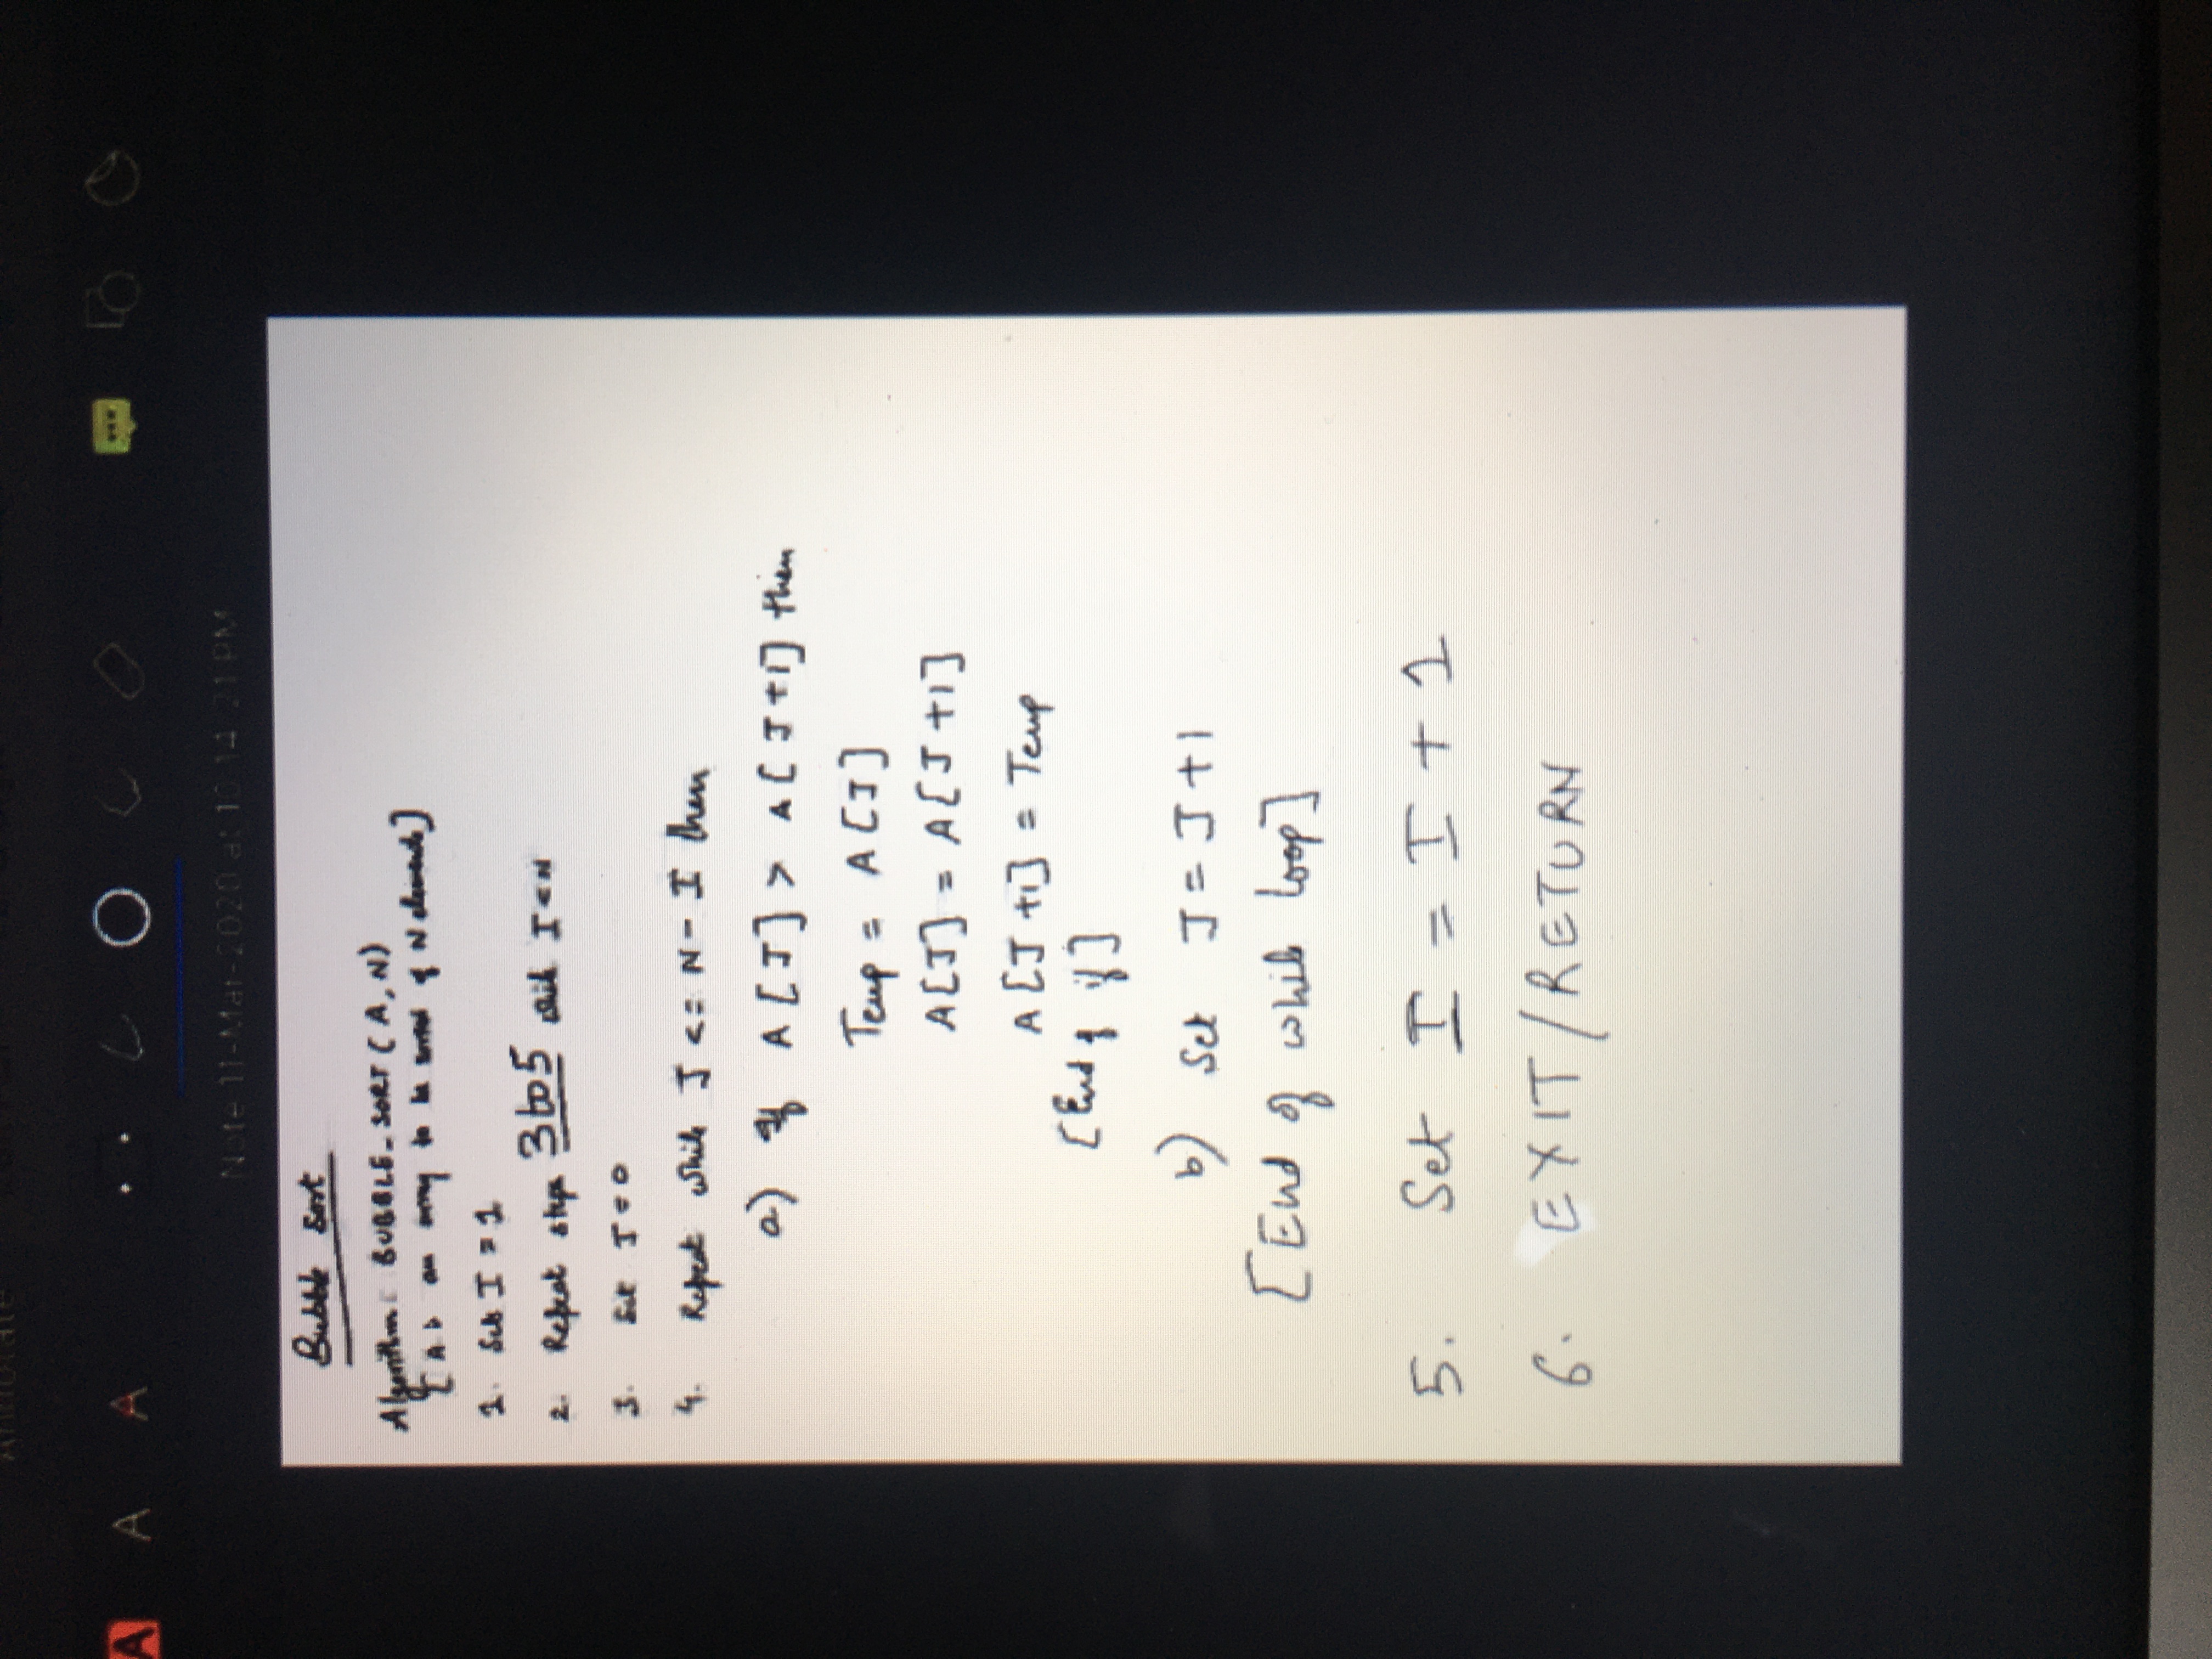 Annotate
A A A
Note 11-Mar-2020 at 10 14 21 PM
Bubble Sort
Algorithm: BUBBLE_SORT (A, N)
[A is an array to be sorted of N elements]
1. Set I = 1
2. Repeat steps 3 to 5 while I < N
3. Set J = 0
4. Repeat while J <= N - I then
a) If A[J] > A[J+1] then
Temp = A[J]
A[J] = A[J+1]
A[J+1] = Temp
[End of if]
b) Set J = J+1
[End of while loop]
5. Set I = I + 1
6. EXIT/RETURN